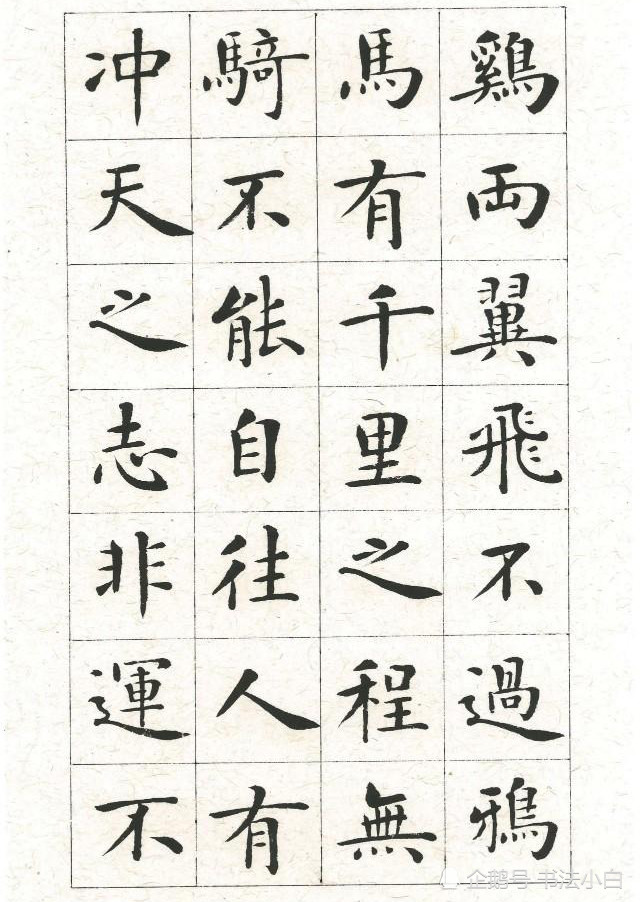 鷄両翼飛不過鴉
馬有千里之程無
騎不能自往人有
冲天之志非運不
企鹅号 书法小白